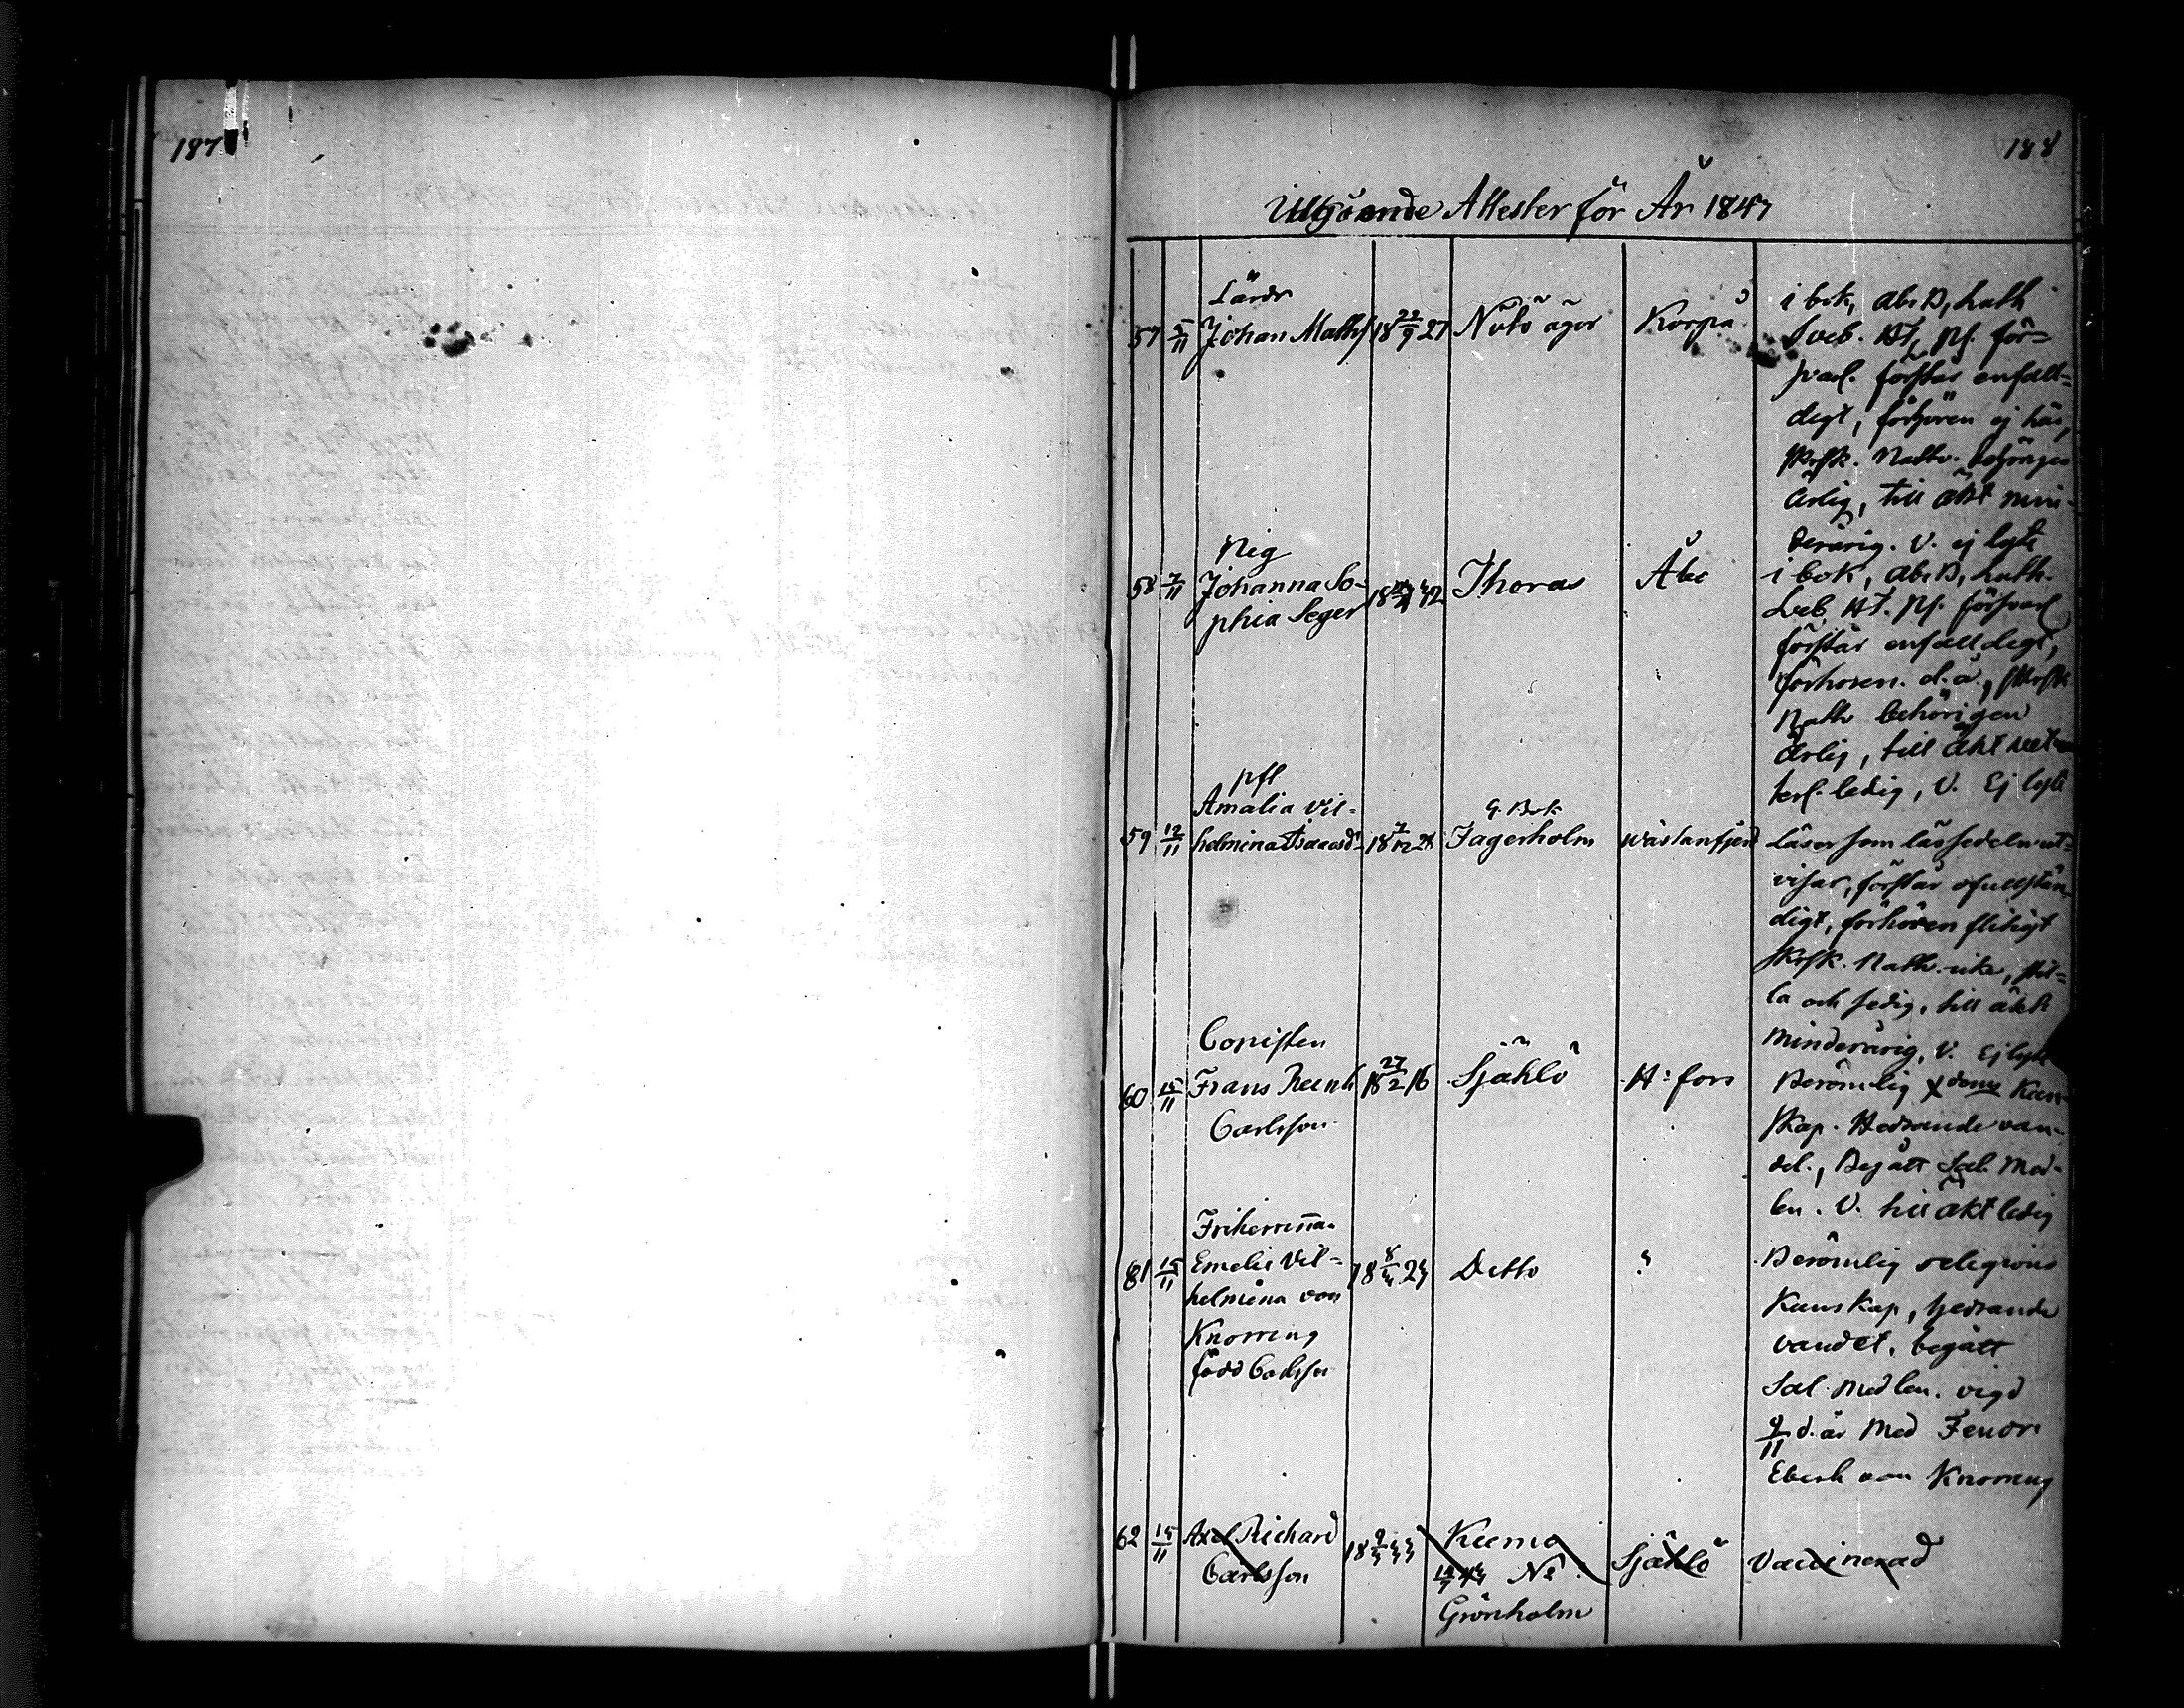 187
188
Utgående Attester för År 1847
Lärdr
57 5/11 Johan Mathss 18 22/9 27 Nötö ägor Korpo
i bok, Abc B, Luth
Sveb. Ht, Ps. för=
svarl. förstår enfall=
digt, förhören ej här,
skrsk. Nattv. behörigen
ärlig, till äkt min-
derårig. V. ej lyte
Pig
58 7/11 Johanna So-
phia Seger 18 42 Thoras Åbo
i bok, Abc B, Luth.
Sveb. Ht. Ps. försvarl
förstår enfalldigt,
förhören. d.å., skrsk
Nattv behörigen
ärlig, till äkt
ledig, V. Ej lyte
pfl
59 12/11 Amalia Vil-
helmina Isaacsd. G. Bok. Jagerholm Wästanfjerd
Läser som läsesedeln ut=
visar, förstår ofullstän
digt, förhören flitigt
skrsk. Nattv. icke, stil=
la och sedig, till äkt
minderårig, V. Ej lyte
Copisten
60 15/11 Frans Reinh
Carlsson 18 27/2 16 Själö H:fors
Berömlig kun-
skap. Hedrande van-
del, Begått Sal. Med-
len. V. till äkt ledig
Friherrinna
61 15/11 Emelie Vil=
helmina von
Knorring
född Carlsson 18 8/4 24 Detto "
Berömlig religions
kunskap, hedrande
vandel, begått
Sal. Medlen. vigd
9/11 d. år med Fendr.
Eberh von Knorring
62 15/11 Axel Richard
Carlsson 18 9/7 44 Kumo
N:
Grönholm Själö Vaccinerad